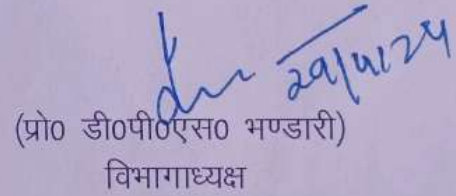 29/4/24
(प्रो0 डी0पी0एस0 भण्डारी)
विभागाध्यक्ष